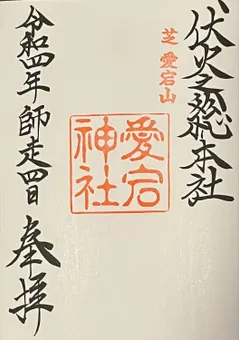 伏火之総本社
芝 愛宕山
愛宕
神社
令和四年 師走四日
奉拝